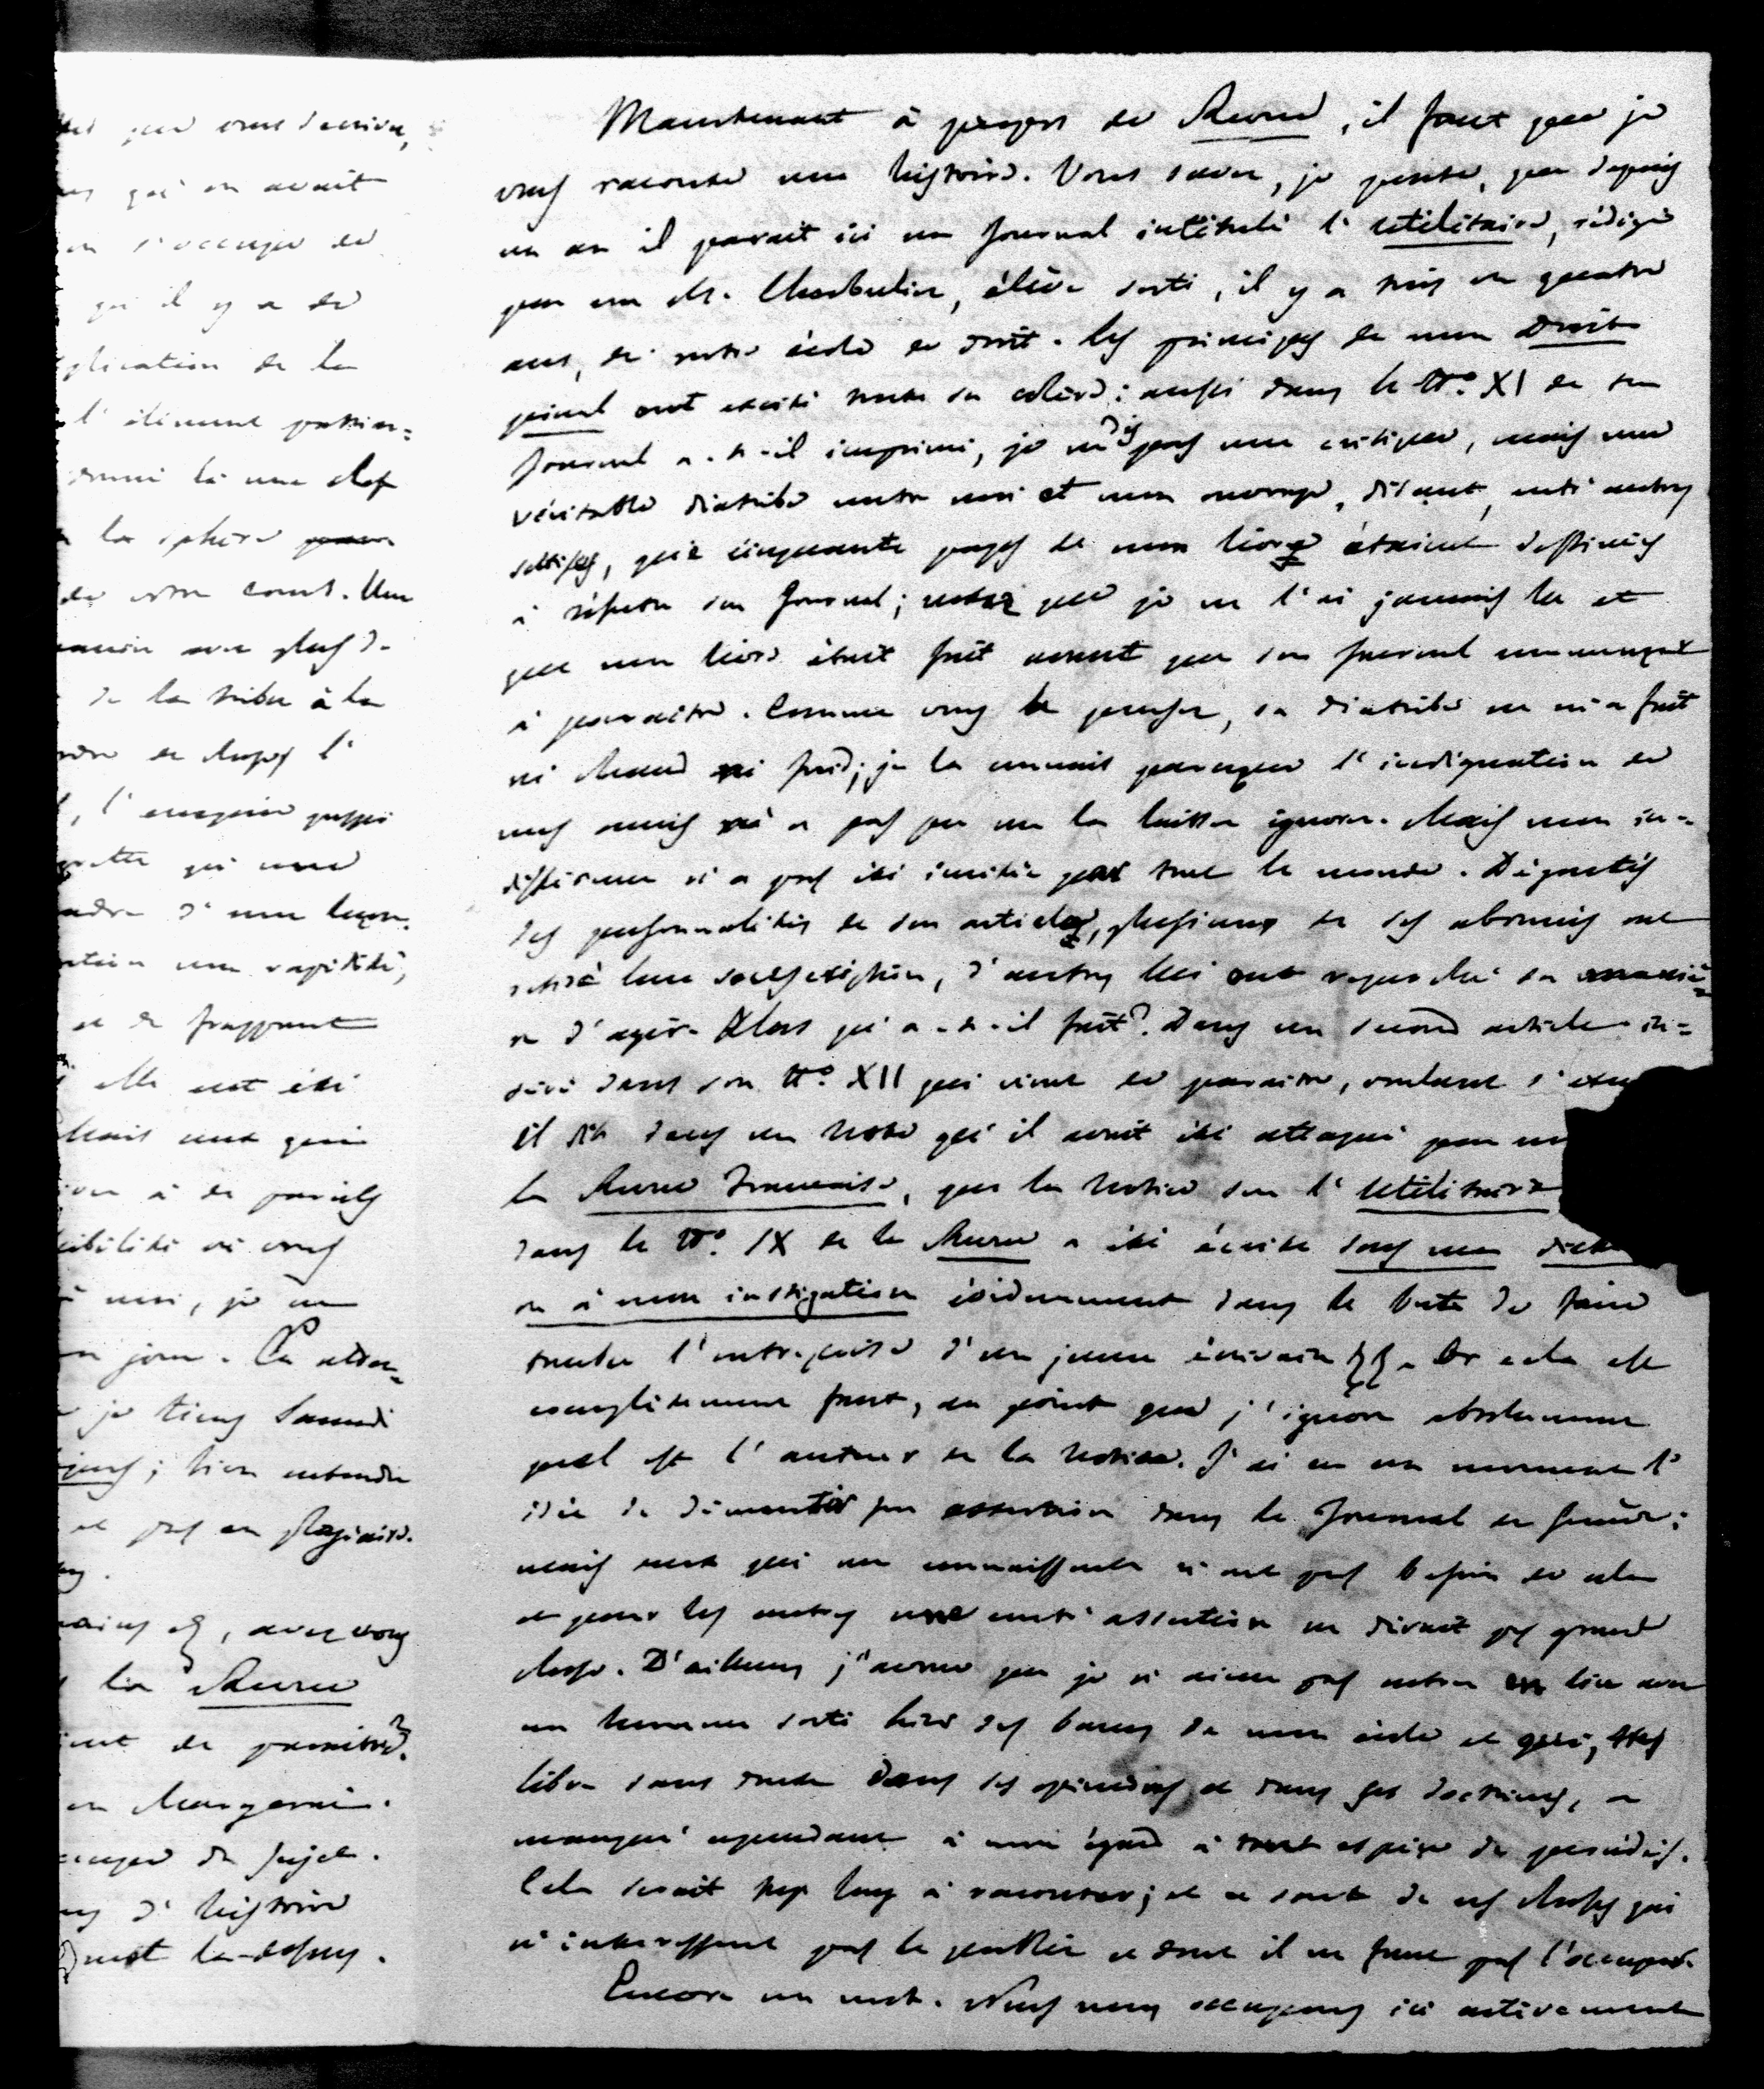 que vous l'ecriviez,
qu'on avait
s'occuper de
qu'il y a de
plication de la
l'élément passion=
donné là une clef
la sphère
de votre cours. Une
avec plus d
de la tribu à la
de choses l'
qui une
d'une leçon.
une rapidité,
et de frappant
elle eut été
Mais ceux qui
à de pareils
sibilité où vous
à moi, je ne
jour. Ce
je tiens Samedi
; bien entendu
et pas en plagiaire.
, avez vous
la Revue
de paraître?
changer de sujet.
d'histoire
mot là-dessus.
Maintenant à propos de Revue, il faut que je
vous raconte une histoire. Vous savez, je pense, que depuis
un an il parait ici un Journal intitulé l'Utilitaire, rédigé
par un Mr. Cherbuliez, élève sorti, il y a trois ou quatre
ans, de notre école de droit. Les principes de mon Droit
pénal ont excité toute sa colère: aussi dans le No. XI de son
Journal a-t-il imprimé, je ne dis pas une critique, mais une
véritable diatribe contre moi et mon ouvrage, disant, entr'autres
sottises, que cinquante pages de mon livre étaient destinées
à réfuter son Journal; notez que je ne l'ai jamais lu et
que mon livre était fait avant que son journal commençat
à paraître. Comme vous le pensez, sa diatribe ne m'a fait
ni chaud ni froid; je la connais parceque l'indignation de
mes amis n'a pas pu me la laisser ignorer. Mais mon in=
différence n'a pas été imitée par tout le monde. Dégoutés
des personnalités de son article, plusieurs de ses abonnés ont
retiré leur souscription, d'autres lui ont reproché sa maniè=
re d'agir. Alors qu'a-t-il fait? Dans un second article in=
séré dans son No. XII qui vient de paraitre, voulant s'
il dit dans une Note qu'il avait été attaqué par
la Revue Francaise, que la Notice sur l'Utilitaire
dans le No. IX de la Revue a été écrite sous ma
ou à mon instigation évidemment dans le but de faire
tomber l'entreprise d'un jeune écrivain. Or cela est
complètement faux, au point que j'ignore absolument
quel est l'auteur de la Notice. J'ai eu un moment l'
idée de démentir son assertion dans le Journal de Genève;
mais ceux qui me connaissent n'ont pas besoin de cela
et pour les autres une contr'assertion ne dirait pas grand
chose. D'ailleurs j'avoue que je n'aime pas entrer en lice avec
un homme sorti hier des bancs de mon école et qui, très
libre sans doute dans ses opinions et dans ses doctrines, a
manqué cependant à mon égard à toute espèce de procédés.
Cela serait trop long à raconter; et ce sont de ces choses qui
n'intéressent pas le public et dont il ne faut pas l'occuper.
Encore un mot. Nous nous occupons ici activement